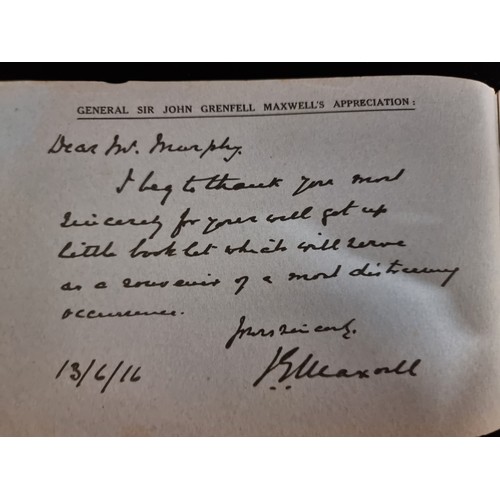 GENERAL SIR JOHN GRENFELL MAXWELL'S APPRECIATION:
Dear Mr. Murphy.
I beg to thank you most
sincerely for your well got up
little book let which will serve
as a souvenir of a most distressing
occurrence.
Yours sincerely.
13/6/16
J G Maxwell